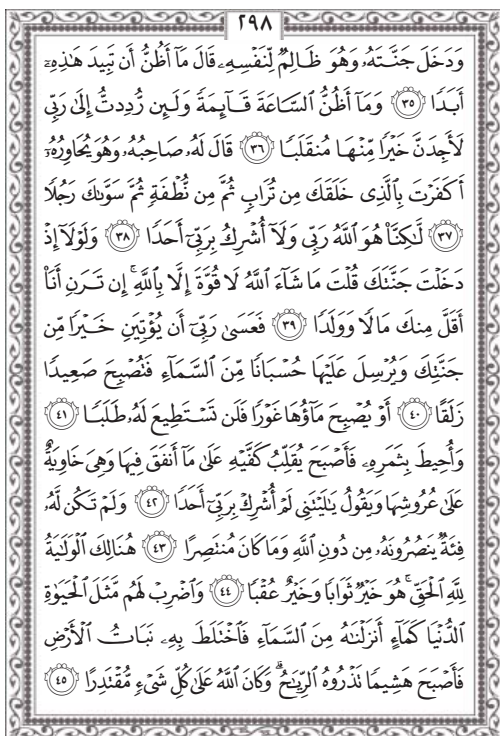 ٢٩٨
وَدَخَلَ جَنَّتَهُۥ وَهُوَ ظَالِمٌ لِّنَفْسِهِۦ قَالَ مَآ أَظُنُّ أَن تَبِيدَ هَٰذِهِۦٓ
أَبَدًا ﴿٣٥﴾ وَمَآ أَظُنُّ ٱلسَّاعَةَ قَآئِمَةً وَلَئِن رُّدِدتُّ إِلَىٰ رَبِّى
لَأَجِدَنَّ خَيْرًا مِّنْهَا مُنقَلَبًا ﴿٣٦﴾ قَالَ لَهُۥ صَاحِبُهُۥ وَهُوَ يُحَاوِرُهُۥٓ
أَكَفَرْتَ بِٱلَّذِى خَلَقَكَ مِن تُرَابٍ ثُمَّ مِن نُّطْفَةٍ ثُمَّ سَوَّىٰكَ رَجُلًا
﴿٣٧﴾ لَّٰكِنَّا۠ هُوَ ٱللَّهُ رَبِّى وَلَآ أُشْرِكُ بِرَبِّىٓ أَحَدًا ﴿٣٨﴾ وَلَوْلَآ إِذْ
دَخَلْتَ جَنَّتَكَ قُلْتَ مَا شَآءَ ٱللَّهُ لَا قُوَّةَ إِلَّا بِٱللَّهِ ۚ إِن تَرَنِ أَنَا۠
أَقَلَّ مِنكَ مَالًا وَوَلَدًا ﴿٣٩﴾ فَعَسَىٰ رَبِّىٓ أَن يُؤْتِيَنِ خَيْرًا مِّن
جَنَّتِكَ وَيُرْسِلَ عَلَيْهَا حُسْبَانًا مِّنَ ٱلسَّمَآءِ فَتُصْبِحَ صَعِيدًا
زَلَقًا ﴿٤٠﴾ أَوْ يُصْبِحَ مَآؤُهَا غَوْرًا فَلَن تَسْتَطِيعَ لَهُۥ طَلَبًا ﴿٤١﴾
وَأُحِيطَ بِثَمَرِهِۦ فَأَصْبَحَ يُقَلِّبُ كَفَّيْهِ عَلَىٰ مَآ أَنفَقَ فِيهَا وَهِىَ خَاوِيَةٌ
عَلَىٰ عُرُوشِهَا وَيَقُولُ يَٰلَيْتَنِى لَمْ أُشْرِكْ بِرَبِّىٓ أَحَدًا ﴿٤٢﴾ وَلَمْ تَكُن لَّهُۥ
فِئَةٌ يَنصُرُونَهُۥ مِن دُونِ ٱللَّهِ وَمَا كَانَ مُنتَصِرًا ﴿٤٣﴾ هُنَالِكَ ٱلْوَلَٰيَةُ
لِلَّهِ ٱلْحَقِّ ۚ هُوَ خَيْرٌ ثَوَابًا وَخَيْرٌ عُقْبًا ﴿٤٤﴾ وَٱضْرِبْ لَهُم مَّثَلَ ٱلْحَيَوٰةِ
ٱلدُّنْيَا كَمَآءٍ أَنزَلْنَٰهُ مِنَ ٱلسَّمَآءِ فَٱخْتَلَطَ بِهِۦ نَبَاتُ ٱلْأَرْضِ
فَأَصْبَحَ هَشِيمًا تَذْرُوهُ ٱلرِّيَٰحُ ۗ وَكَانَ ٱللَّهُ عَلَىٰ كُلِّ شَىْءٍ مُّقْتَدِرًا ﴿٤٥﴾